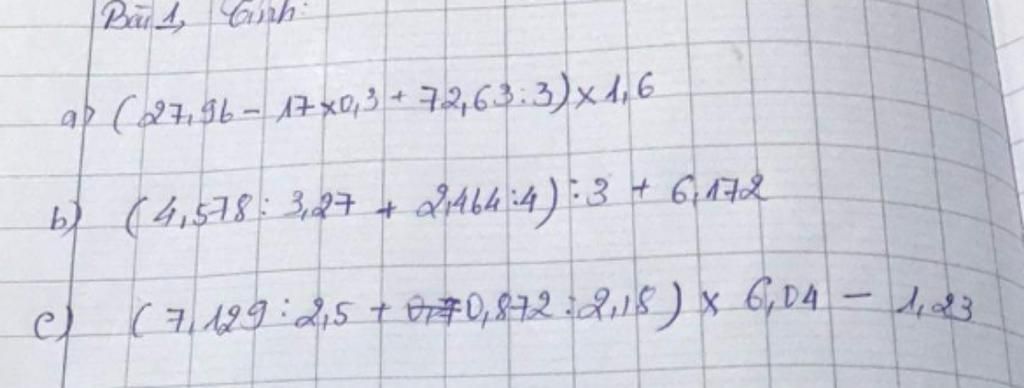 Bài 1, Tính:
a) (27,96 - 17 x 0,3 + 72,63 : 3) x 1,6
b) (4,578 : 3,27 + 2,464 : 4) : 3 + 6,172
c) (7,129 : 2,5 + 0,872 : 2,18) x 6,04 - 1,23